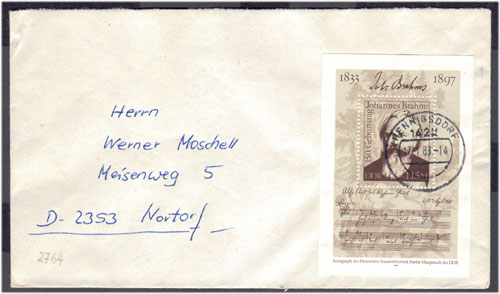 1833 1897
Joh. Brahms
Johannes Brahms
150. Geburtstag
HENNIGSDORF
1422
83-14
DDR 1,15 M
Herrn
Werner Moschell
Meisenweg 5
D-2353 Nortorf
2764
Autograph der Deutschen Staatsbibliothek Berlin · Hauptstadt der DDR